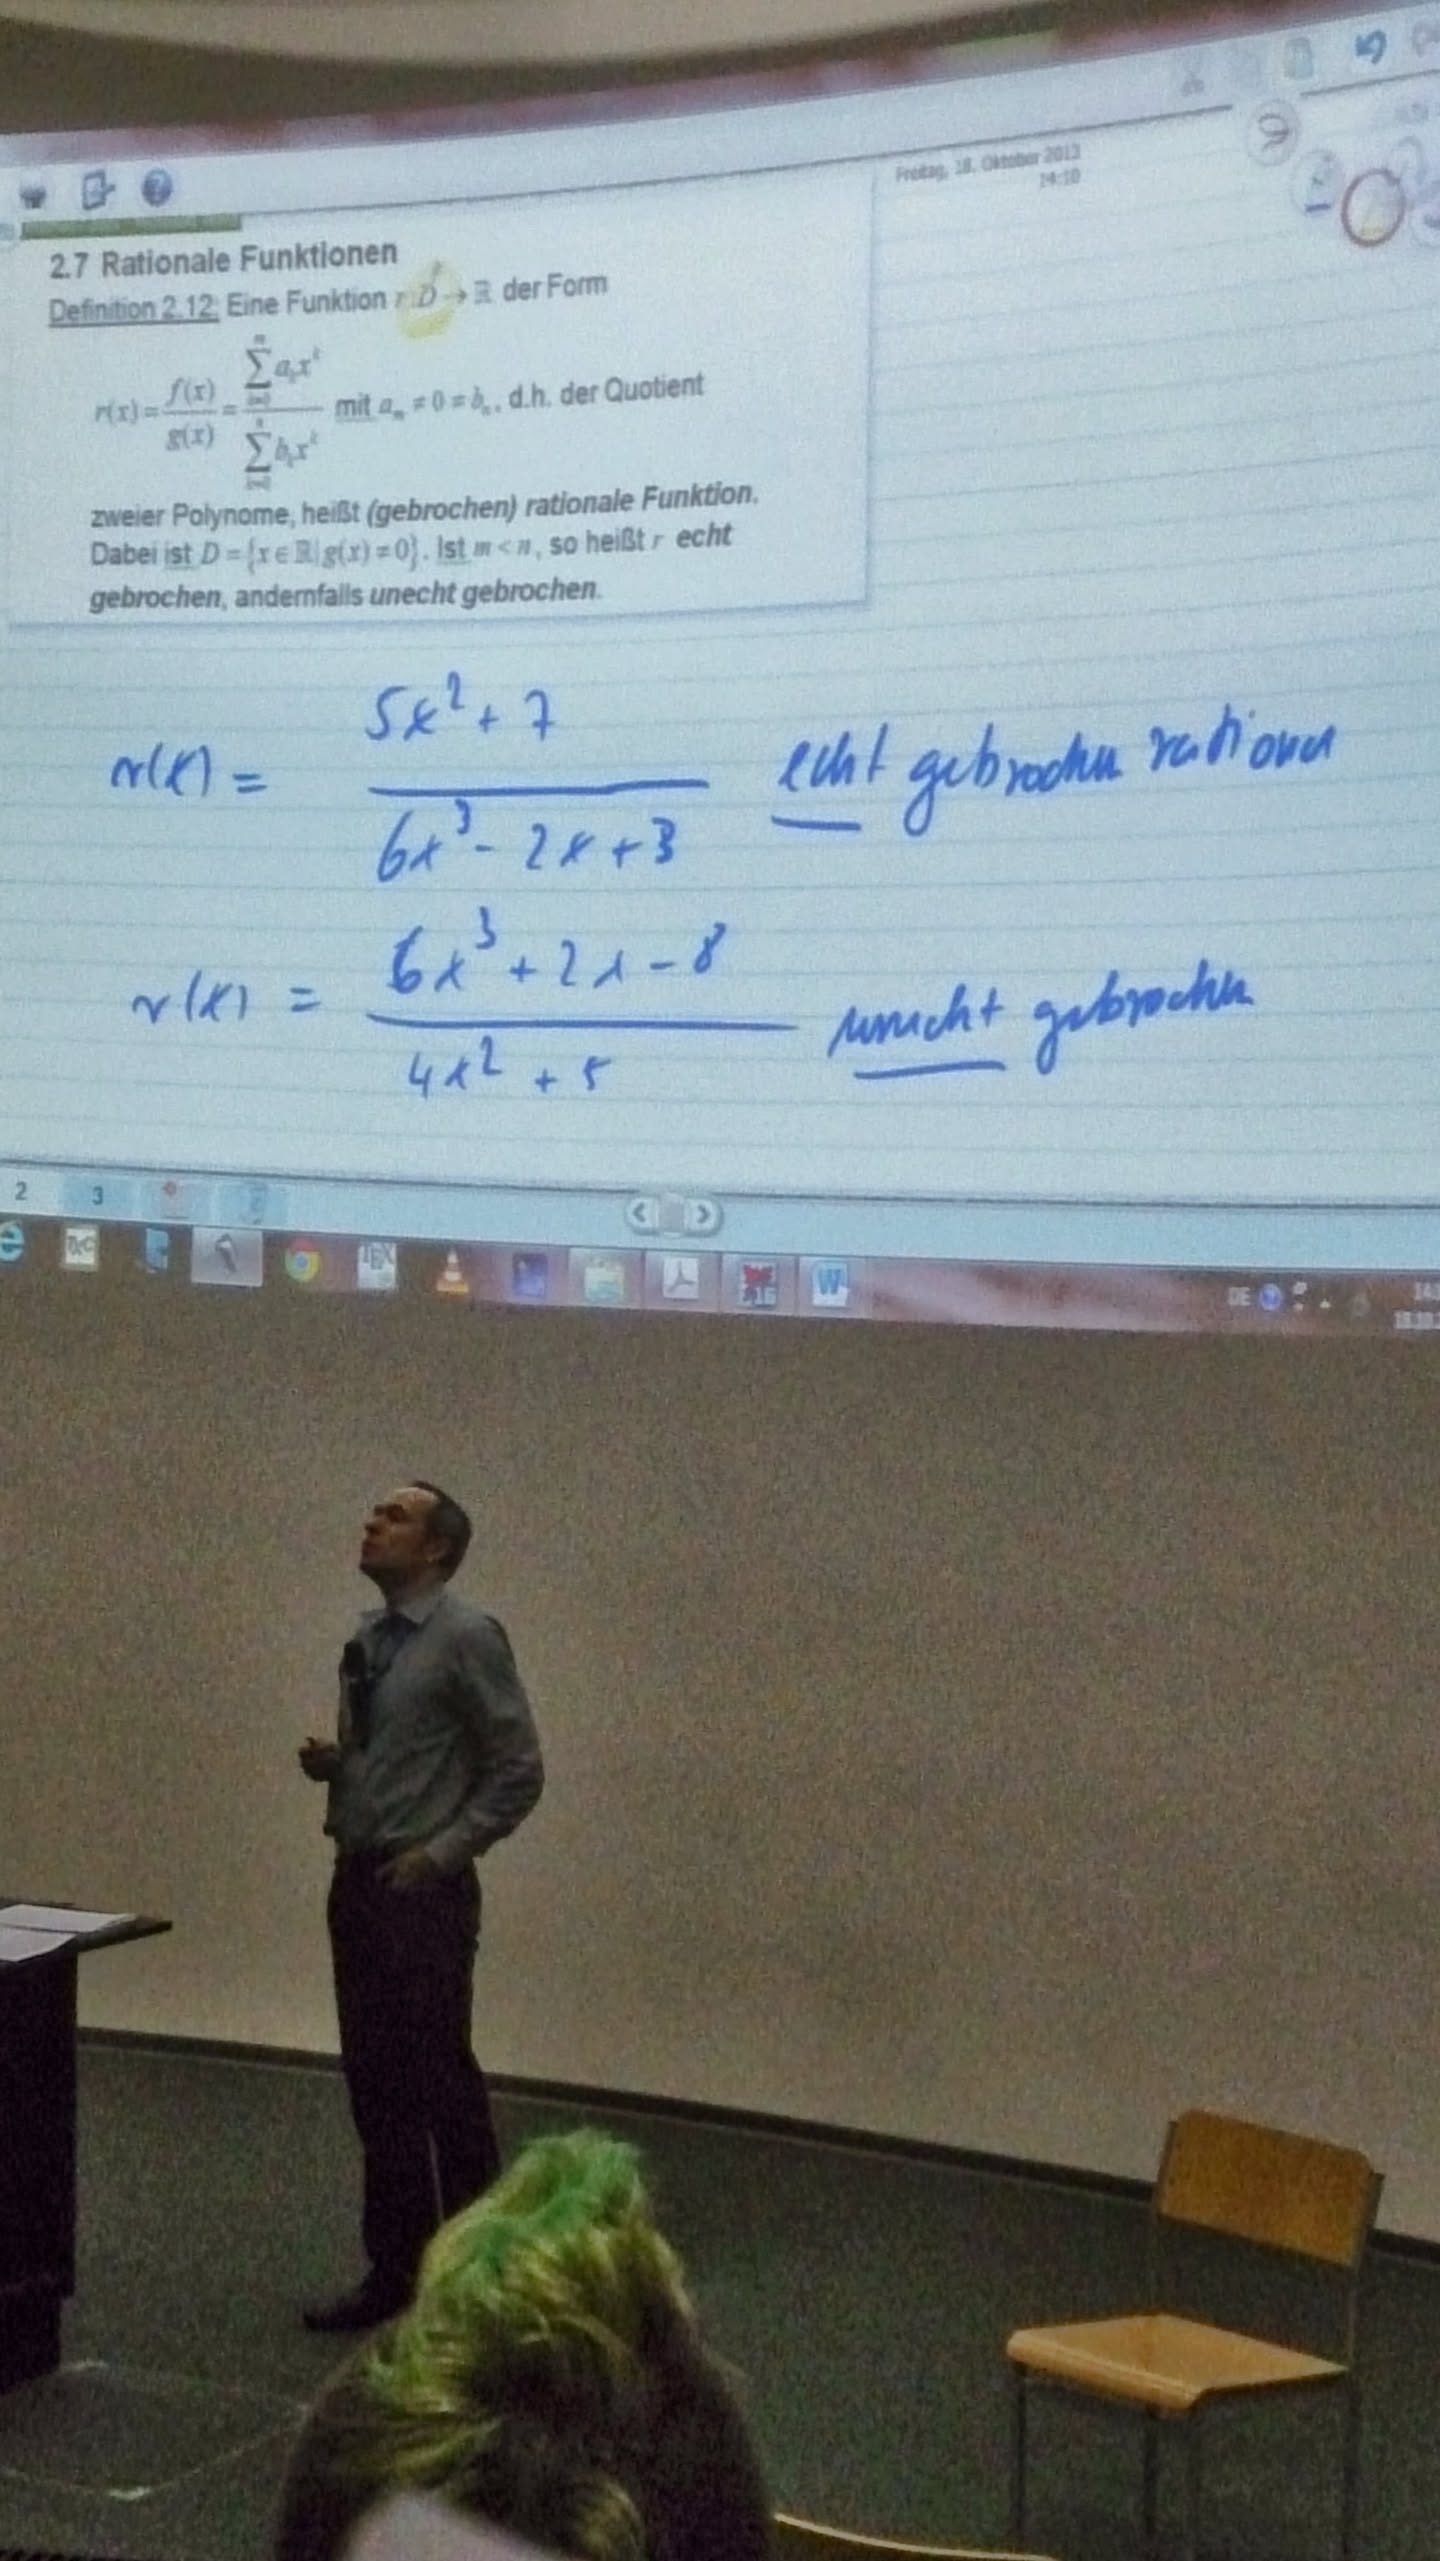 Freitag, 18. Oktober 2013
14:10
2.7 Rationale Funktionen
Definition 2.12: Eine Funktion r: D → ℝ der Form
r(x) = f(x)/g(x) = ∑ aₖxᵏ / ∑ bₖxᵏ mit aₘ ≠ 0 ≠ bₙ, d.h. der Quotient
zweier Polynome, heißt (gebrochen) rationale Funktion.
Dabei ist D = {x ∈ ℝ | g(x) ≠ 0}. Ist m < n, so heißt r echt
gebrochen, andernfalls unecht gebrochen.
r(x) = (5x² + 7)/(6x³ - 2x + 3) echt gebrochen rational
r(x) = (6x³ + 2x - 8)/(4x² + 5) unecht gebrochen
2 3
DE